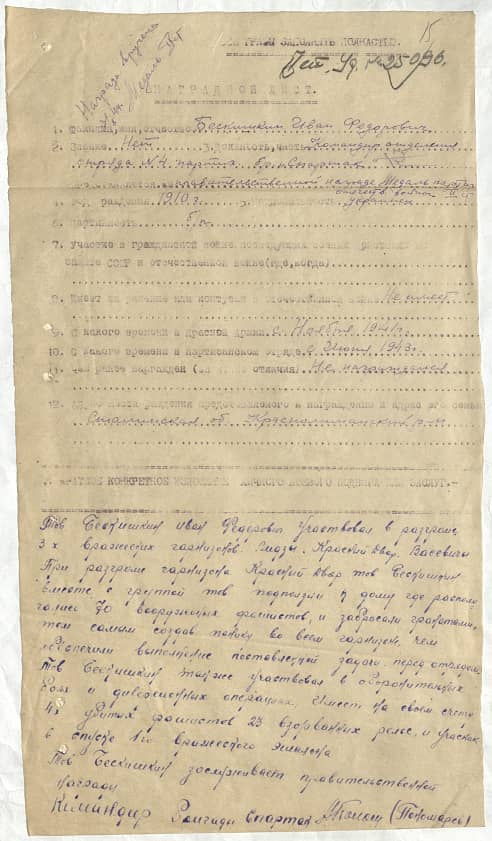 15
Награда вручена
Медаль
Уд. № 25096.
НАГРАДНОЙ ЛИСТ.
1. Фамилия, имя, отчество Бескишкин Иван Федорович
2. Звание Нет 3. Должность, часть Командир отделения
отряда № 4 партиз. бр. "Спартак"
правительственной награде Медаль партиз.
отечеств. войны II ст.
4. Год рождения 1910 г. 5. Национальность украинец
6. Партийность б/п.
7. Участие в гражданской войне последующих боевых действиях по
защите СССР и отечественной войне (где, когда)
8. Имеет ли ранение или контузии в отечественной войне Не имеет
9. С какого времени в Красной Армии с Ноября 1941 г.
10. С какого времени в партизанском отряде с Июня 1943 г.
11. Чем ранее награжден (за отличия) Не награждался
12. рождения представляемого к награждению и адрес его семьи
Сталинская об. Краснолиманский р-н
КРАТКОЕ КОНКРЕТНОЕ ИЗЛОЖЕНИЕ ЛИЧНОГО БОЕВОГО ПОДВИГА ИЛИ ЗАСЛУГ.-
Тов Бескишкин Иван Федорович участвовал в разгроме
3х вражеских гарнизонов Красный Двор. Васевичи
При разгроме гарнизона Красный Двор тов Бескишкин
вместе с группой тов подползли к дому где распола-
гались 70 вооруженых фашистов, и забросали гранатами,
тем самым создав панику во всем гарнизоне, чем
обеспечили выполнение поставленной задачи перед отрядом.
Тов Бескишкин также участвовал в оборонительных
боях и диверсионных операциях. Имеет на своем счету
4х убитых фашистов 23 взорванных рельс, и участник
в спуске 1го вражеского эшелона
Тов Бескишкин заслуживает правительственной
награды
Командир Бригады Спартак (Пономарев)